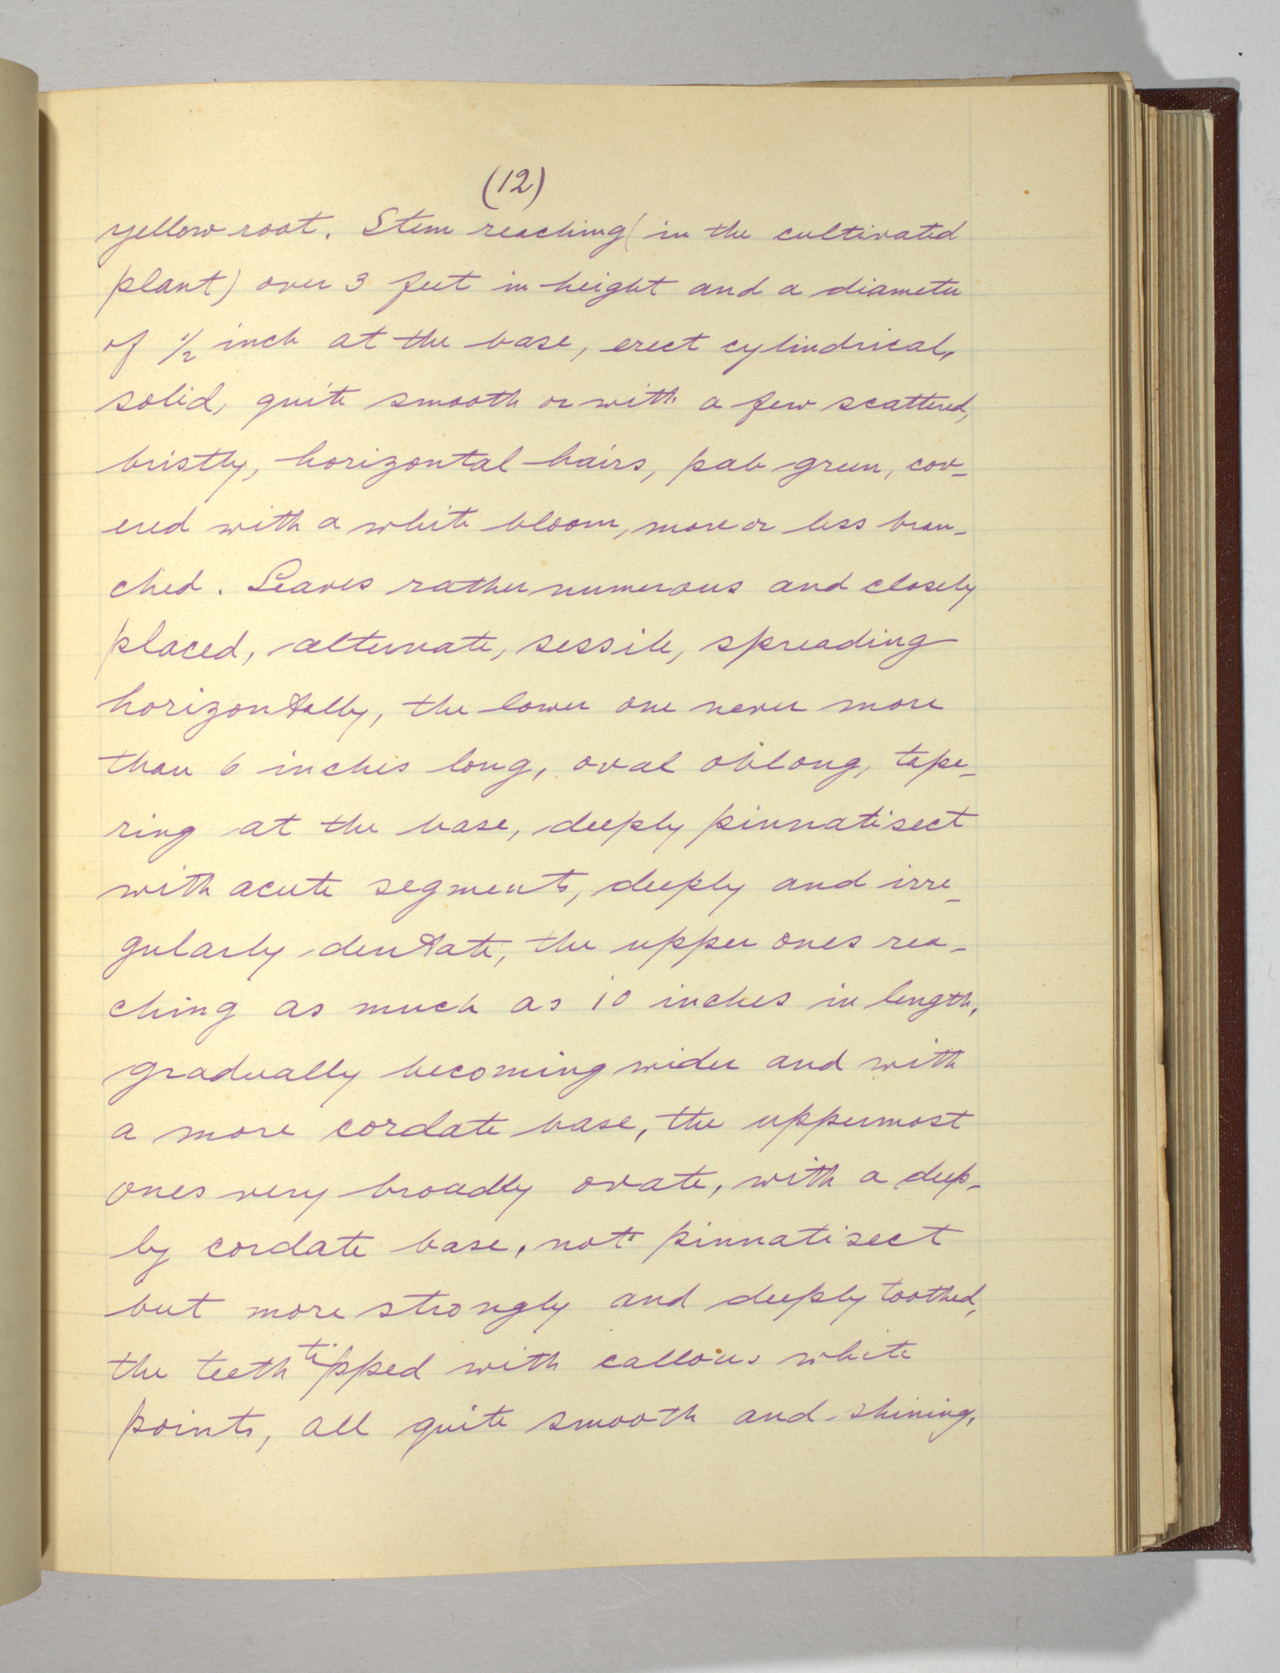 (12)
yellow root. Stem reaching (in the cultivated
plant) over 3 feet in height and a diameter
of ½ inch at the base, erect cylindrical,
solid, quite smooth or with a few scattered,
bristly, horizontal hairs, pale green, cov-
ered with a white bloom, more or less bran-
ched. Leaves rather numerous and closely
placed, alternate, sessile, spreading
horizontally, the lower one never more
than 6 inches long, oval oblong, tape-
ring at the base, deeply pinnatisect
with acute segments, deeply and irre-
gularly dentate, the upper ones rea-
ching as much as 10 inches in length,
gradually becoming wider and with
a more cordate base, the uppermost
ones very broadly ovate, with a deep-
ly cordate base, not pinnatisect
but more strongly and deeply toothed,
the teeth tipped with callous white
points, all quite smooth and shining,